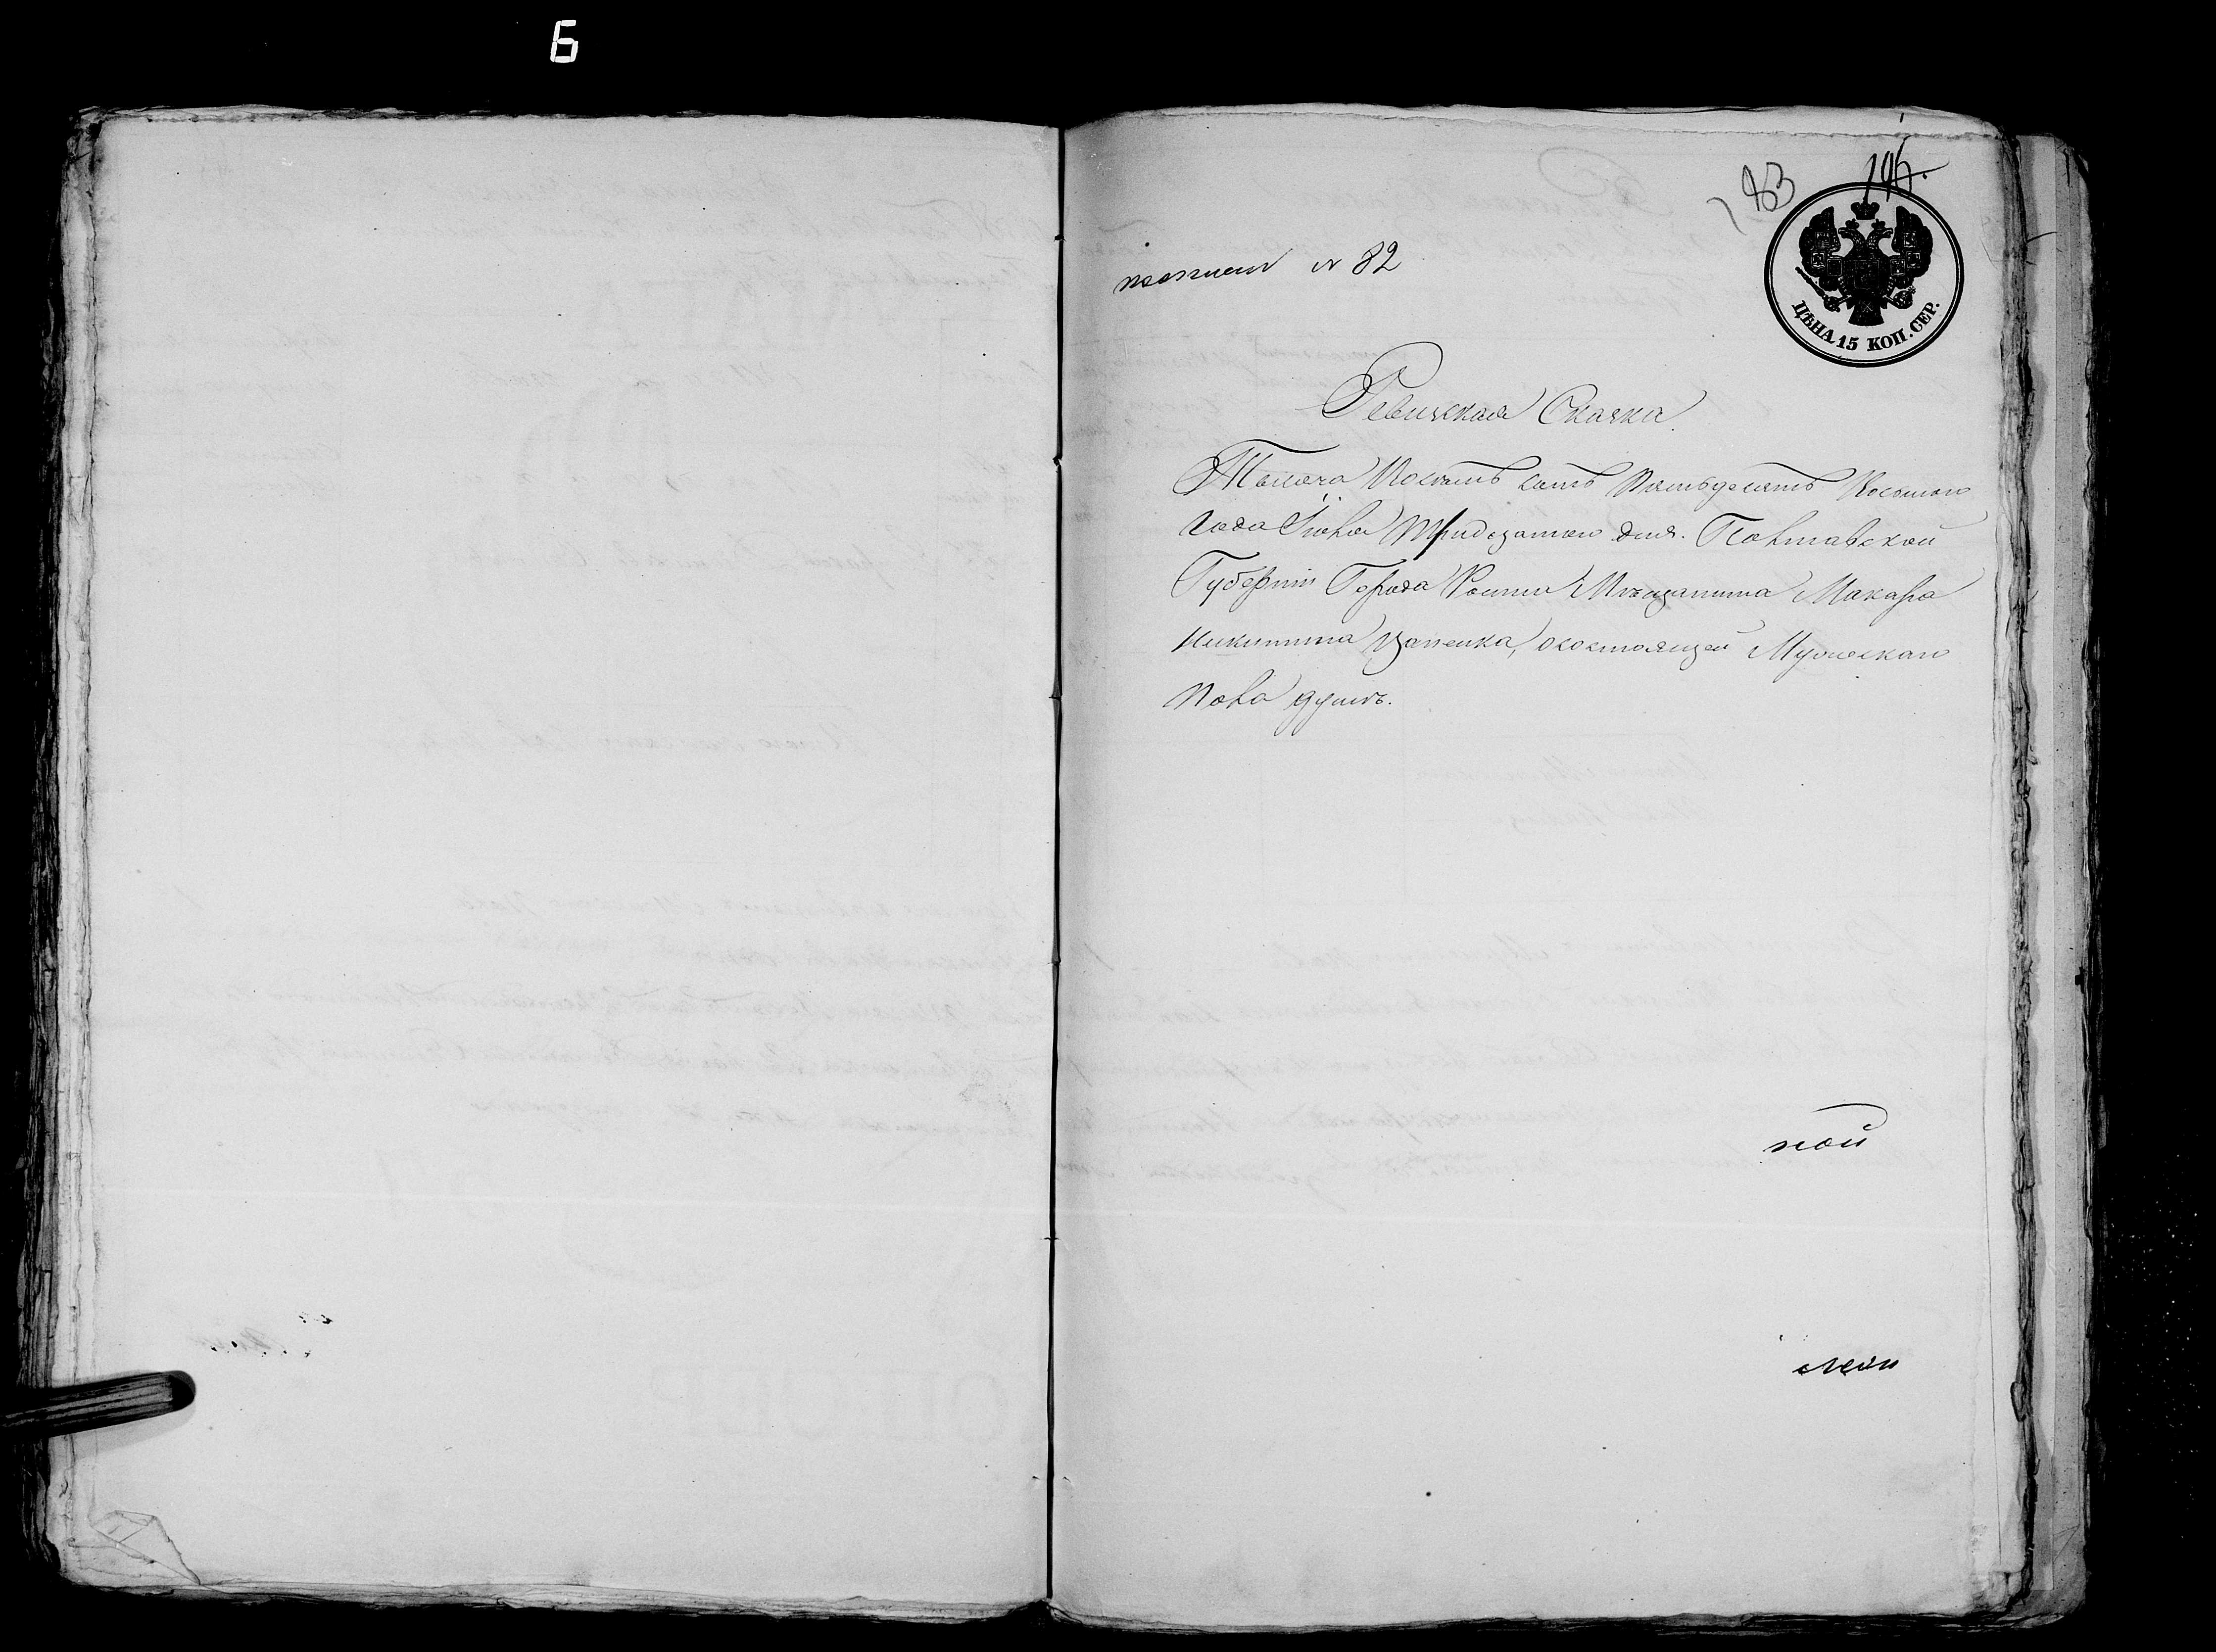 6
183
194.
№ 82
ЦѢНА 15 КОП. СЕР.
Ревизская Сказка.
Тысяча Восемь сотъ Пятьдесятъ Восьмаго
года Іюня Тридцатаго дня. Полтавской
Губерніи Города Ромна Мѣщанина Макара
Никитина Цапенка, о состоящей Мужескаго
Пола душѣ.
ной